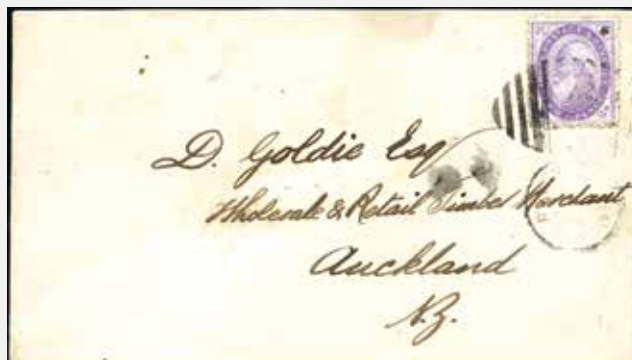 D. Goldie Esq
Wholesale & Retail Timber Merchant
Auckland
N.Z.